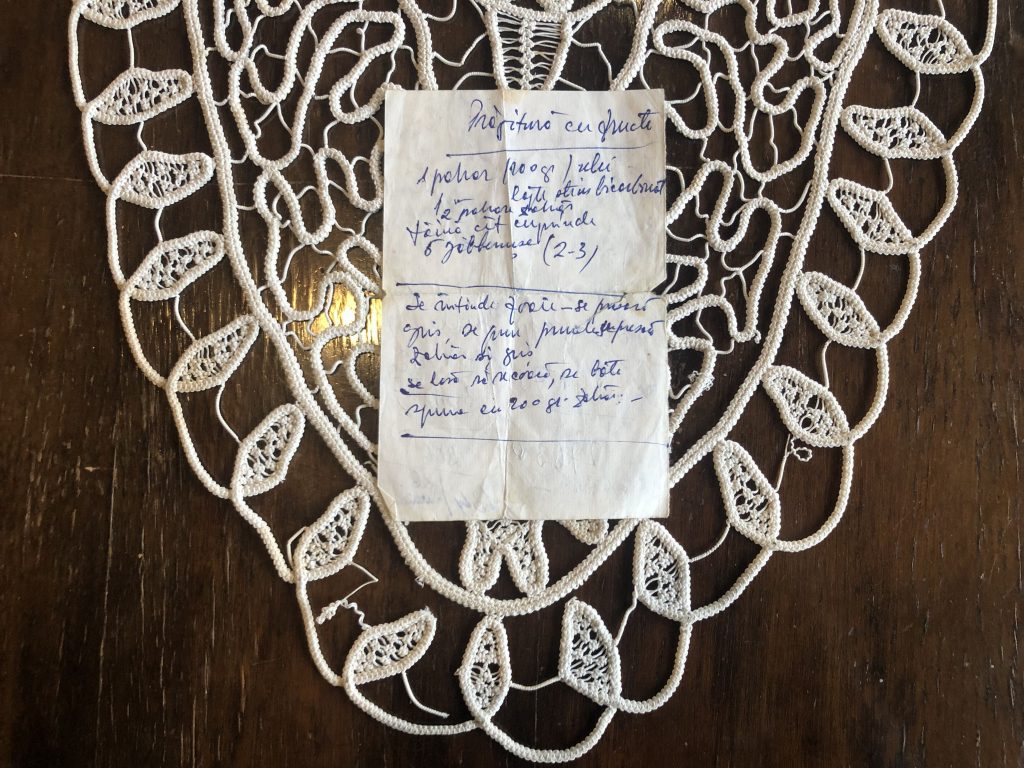 Prăjitură cu fructe
1 pahar (200 gr) ulei
lapte stins bicarbonat
1 2 pahare zahăr
făină cît cuprinde
5 gălbenușe (2-3)
Se întinde foaie - se presară
gris se pun prunele se presară
zahăr si gris
se lasă să se coacă, se bate
spuma cu 200 gr zahăr. -